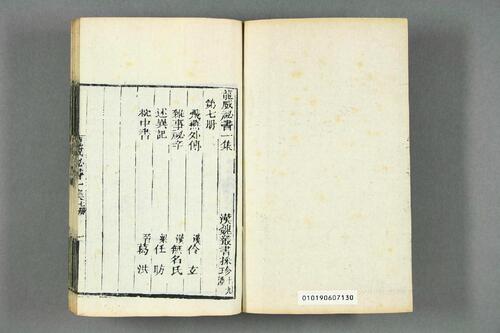 龍威祕書一集
漢魏叢書採珍
第七册
飛燕外傳 漢 伶玄
雜事祕辛 漢 無名氏
述異記 梁 任昉
枕中書 晉 葛洪
龍威祕書一集
010190607130